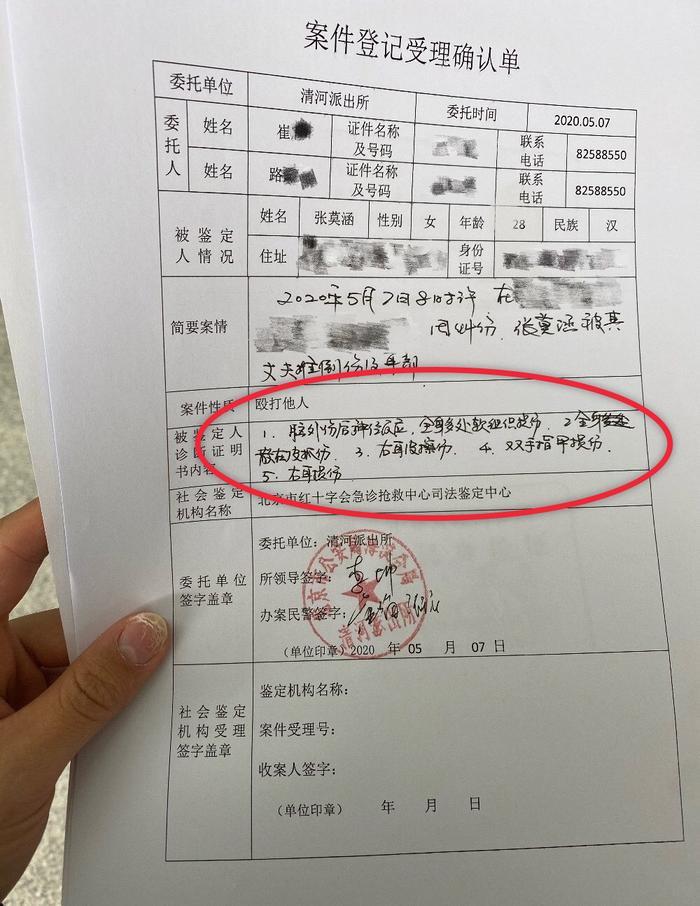 案件登记受理确认单
委托单位 清河派出所 委托时间 2020.05.07
委托人 姓名 崔 证件名称及号码 联系电话 82588550
姓名 路 证件名称及号码 联系电话 82588550
被鉴定人情况 姓名 张莫涵 性别 女 年龄 28 民族 汉
住址 身份证号
简要案情 2020年5月7日8时许 在
张莫涵被其
丈夫
案件性质 殴打他人
被鉴定人诊断证明书内容 1. 脑外伤后神经反应,全身多处软组织损伤. 2 全身多处
皮擦伤 3. 右耳皮擦伤. 4. 双手指甲损伤.
5. 右耳损伤.
社会鉴定机构名称 北京市红十字会急诊抢救中心司法鉴定中心
委托单位签字盖章
委托单位:清河派出所
所领导签字:李
办案民警签字:
(单位印章)2020 年 05 月 07 日
清河派出所
社会鉴定机构受理签字盖章
鉴定机构名称:
案件受理号:
收案人签字:
(单位印章) 年 月 日